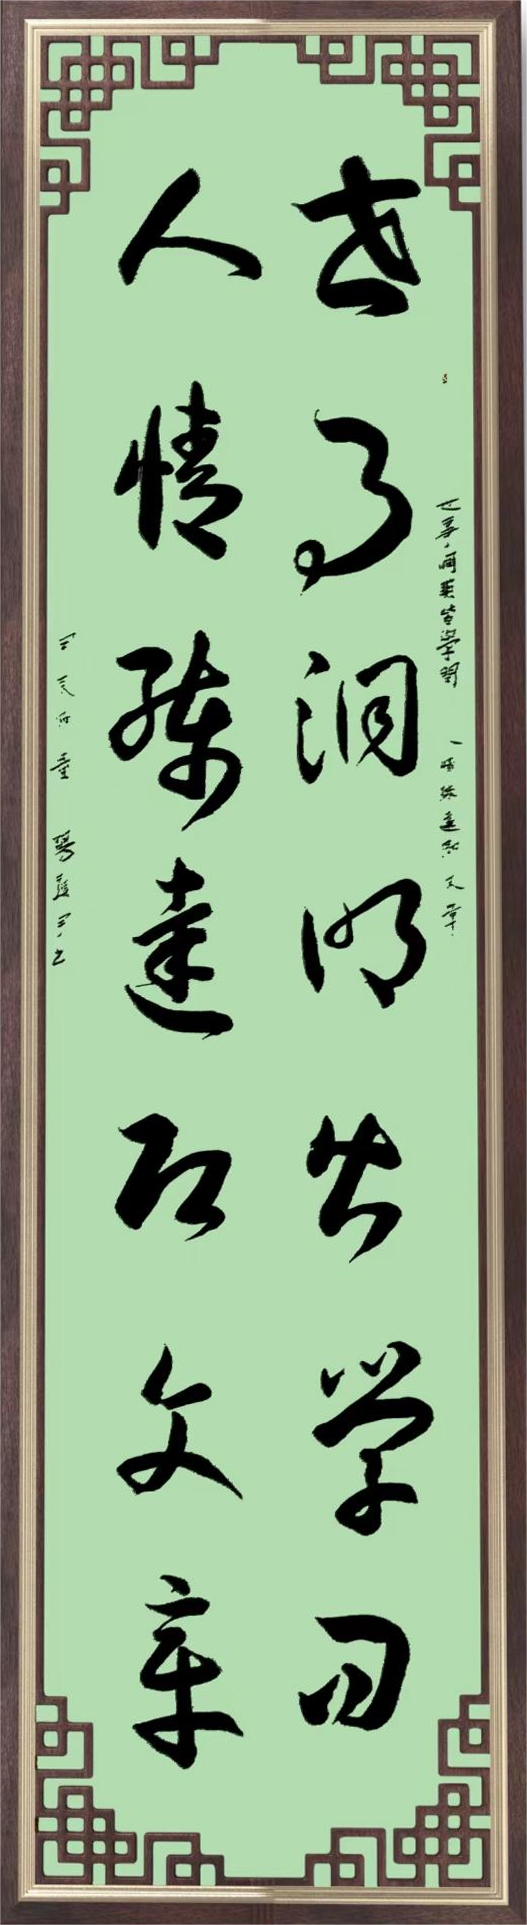 世事洞明皆學問 人情練達即文章
世事洞明皆学问
人情练達即文章